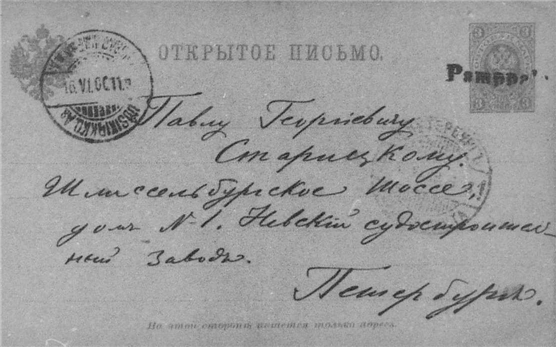 ОТКРЫТОЕ ПИСЬМО.
3 3
3 3
UUSIKIRKKO
Павлу Георгіевичу
Старицкому.
Шлиссельбургское Шоссе,
домъ №1. Невскій судостроитель-
ный Заводъ.
Петербургъ.
На этой сторонѣ пишется только адресъ.